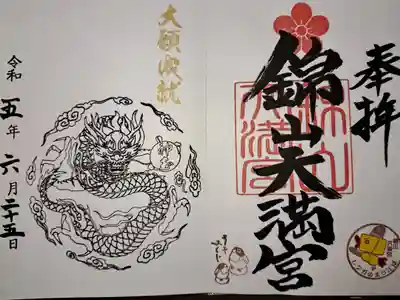 奉拝
錦山天満宮
大願成就
令和五年六月二十五日